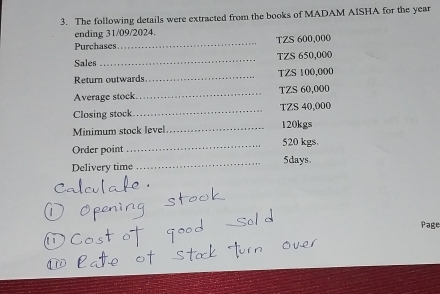 3. The following details were extracted from the books of MADAM AISHA for the year
ending 31/09/2024.
Purchases.................................... TZS 600,000
Sales .......................................... TZS 650,000
Return outwards............................ TZS 100,000
Average stock................................ TZS 60,000
Closing stock................................. TZS 40,000
Minimum stock level......................... 120kgs
Order point ................................... 520 kgs.
Delivery time ................................. 5days.
Calculate.
(i) Opening stook
(ii) Cost of good sold
Page
(iii) Rate of stock turn over